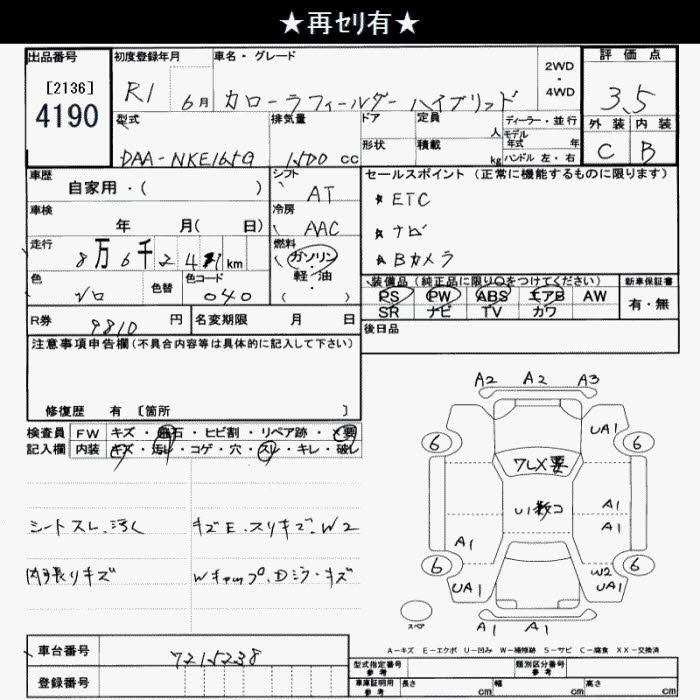 ★再ｾﾘ有★
出品番号
[2136]
4190
初度登録年月
R1 6月
車名・グレード
カローラフィールダー ハイブリッド
2WD
・
4WD
評価点
3.5
外装 内装
C B
型式
DAA-NKE165G
排気量
1500 cc
ドア
形状
定員
人
積載
kg
ディーラー・並行
モデル
年式 年
ハンドル 左・右
車歴
自家用・( )
シフト
AT
車検
年 月( 日)
冷房
AAC
走行
8万6千24 km
燃料
ガソリン
・
軽・油
( )
色
シロ
色替
色コード
040
R券
9810 円
名変期限 月 日
セールスポイント (正常に機能するものに限ります)
★ETC
★ナビ
★Bカメラ
装備品(純正品に限り○をつけてください)
PS PW ABS エアB AW
SR ナビ TV カワ
新車保証書
有・無
後日品
注意事項申告欄(不具合内容等は具体的に記入して下さい)
修復歴 有 [箇所 ]
検査員
記入欄
FW キズ・飛石・ヒビ割・リペア跡・×要
内装 キズ・汚レ・コゲ・穴・スレ・キレ・破レ
シートスレ.汚レ
内張りキズ
キズE.スリキズ.W2
Wキャップ.Dミラ・キズ
A2 A2 A3
UA1
6 6
フレX要
U1数コ
A1
A1
A1
6 6
UA1
W2
UA1
A1 A1
スペア
A-キズ E-エクボ U-凹み W-補修跡 S-サビ C-腐食 XX-交換済
車台番号
7215238
登録番号
型式指定番号
参考
類別区分番号
参考
車庫証明用
参考
長さ cm
幅 cm
高さ cm